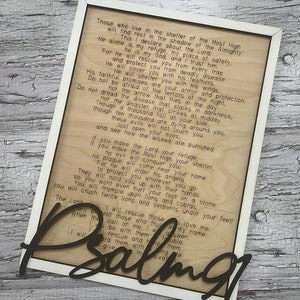 Those who live in the shelter of the Most High
will find rest in the shadow of the Almighty.
This I declare about the Lord:
He alone is my refuge, my place of safety;
he is my God, and I trust him.
For he will rescue you from every trap
and protect you from deadly disease.
He will cover you with his feathers.
He will shelter you with his wings.
His faithful promises are your armor and protection.
Do not be afraid of the terrors of the night,
nor the arrow that flies in the day.
Do not dread the disease that stalks in darkness,
nor the disaster that strikes at midday.
Though a thousand fall at your side,
though ten thousand are dying around you,
these evils will not touch you.
Just open your eyes,
and see how the wicked are punished.
If you make the Lord your refuge,
if you make the Most High your shelter,
no evil will conquer you;
no plague will come near your home.
For he will order his angels
to protect you wherever you go.
They will hold you up with their hands
so you won't even hurt your foot on a stone.
You will trample upon lions and cobras;
you will crush fierce lions and serpents under your feet!
The Lord says, "I will rescue those who love me.
I will
When they call on me, I will
I will
I will rescue and
I will reward them
Psalm 91